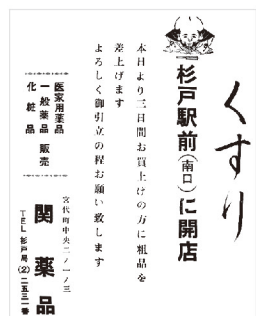 くすり
杉戸駅前(南口)に開店
本日より三日間お買上げの方に粗品を
差上げます
よろしく御引立の程お願い致します
医家用薬品
一般薬品 販売
化粧品
宮代町中央二ノ一ノ三
関薬品
TEL 杉戸局(2)二五三一番